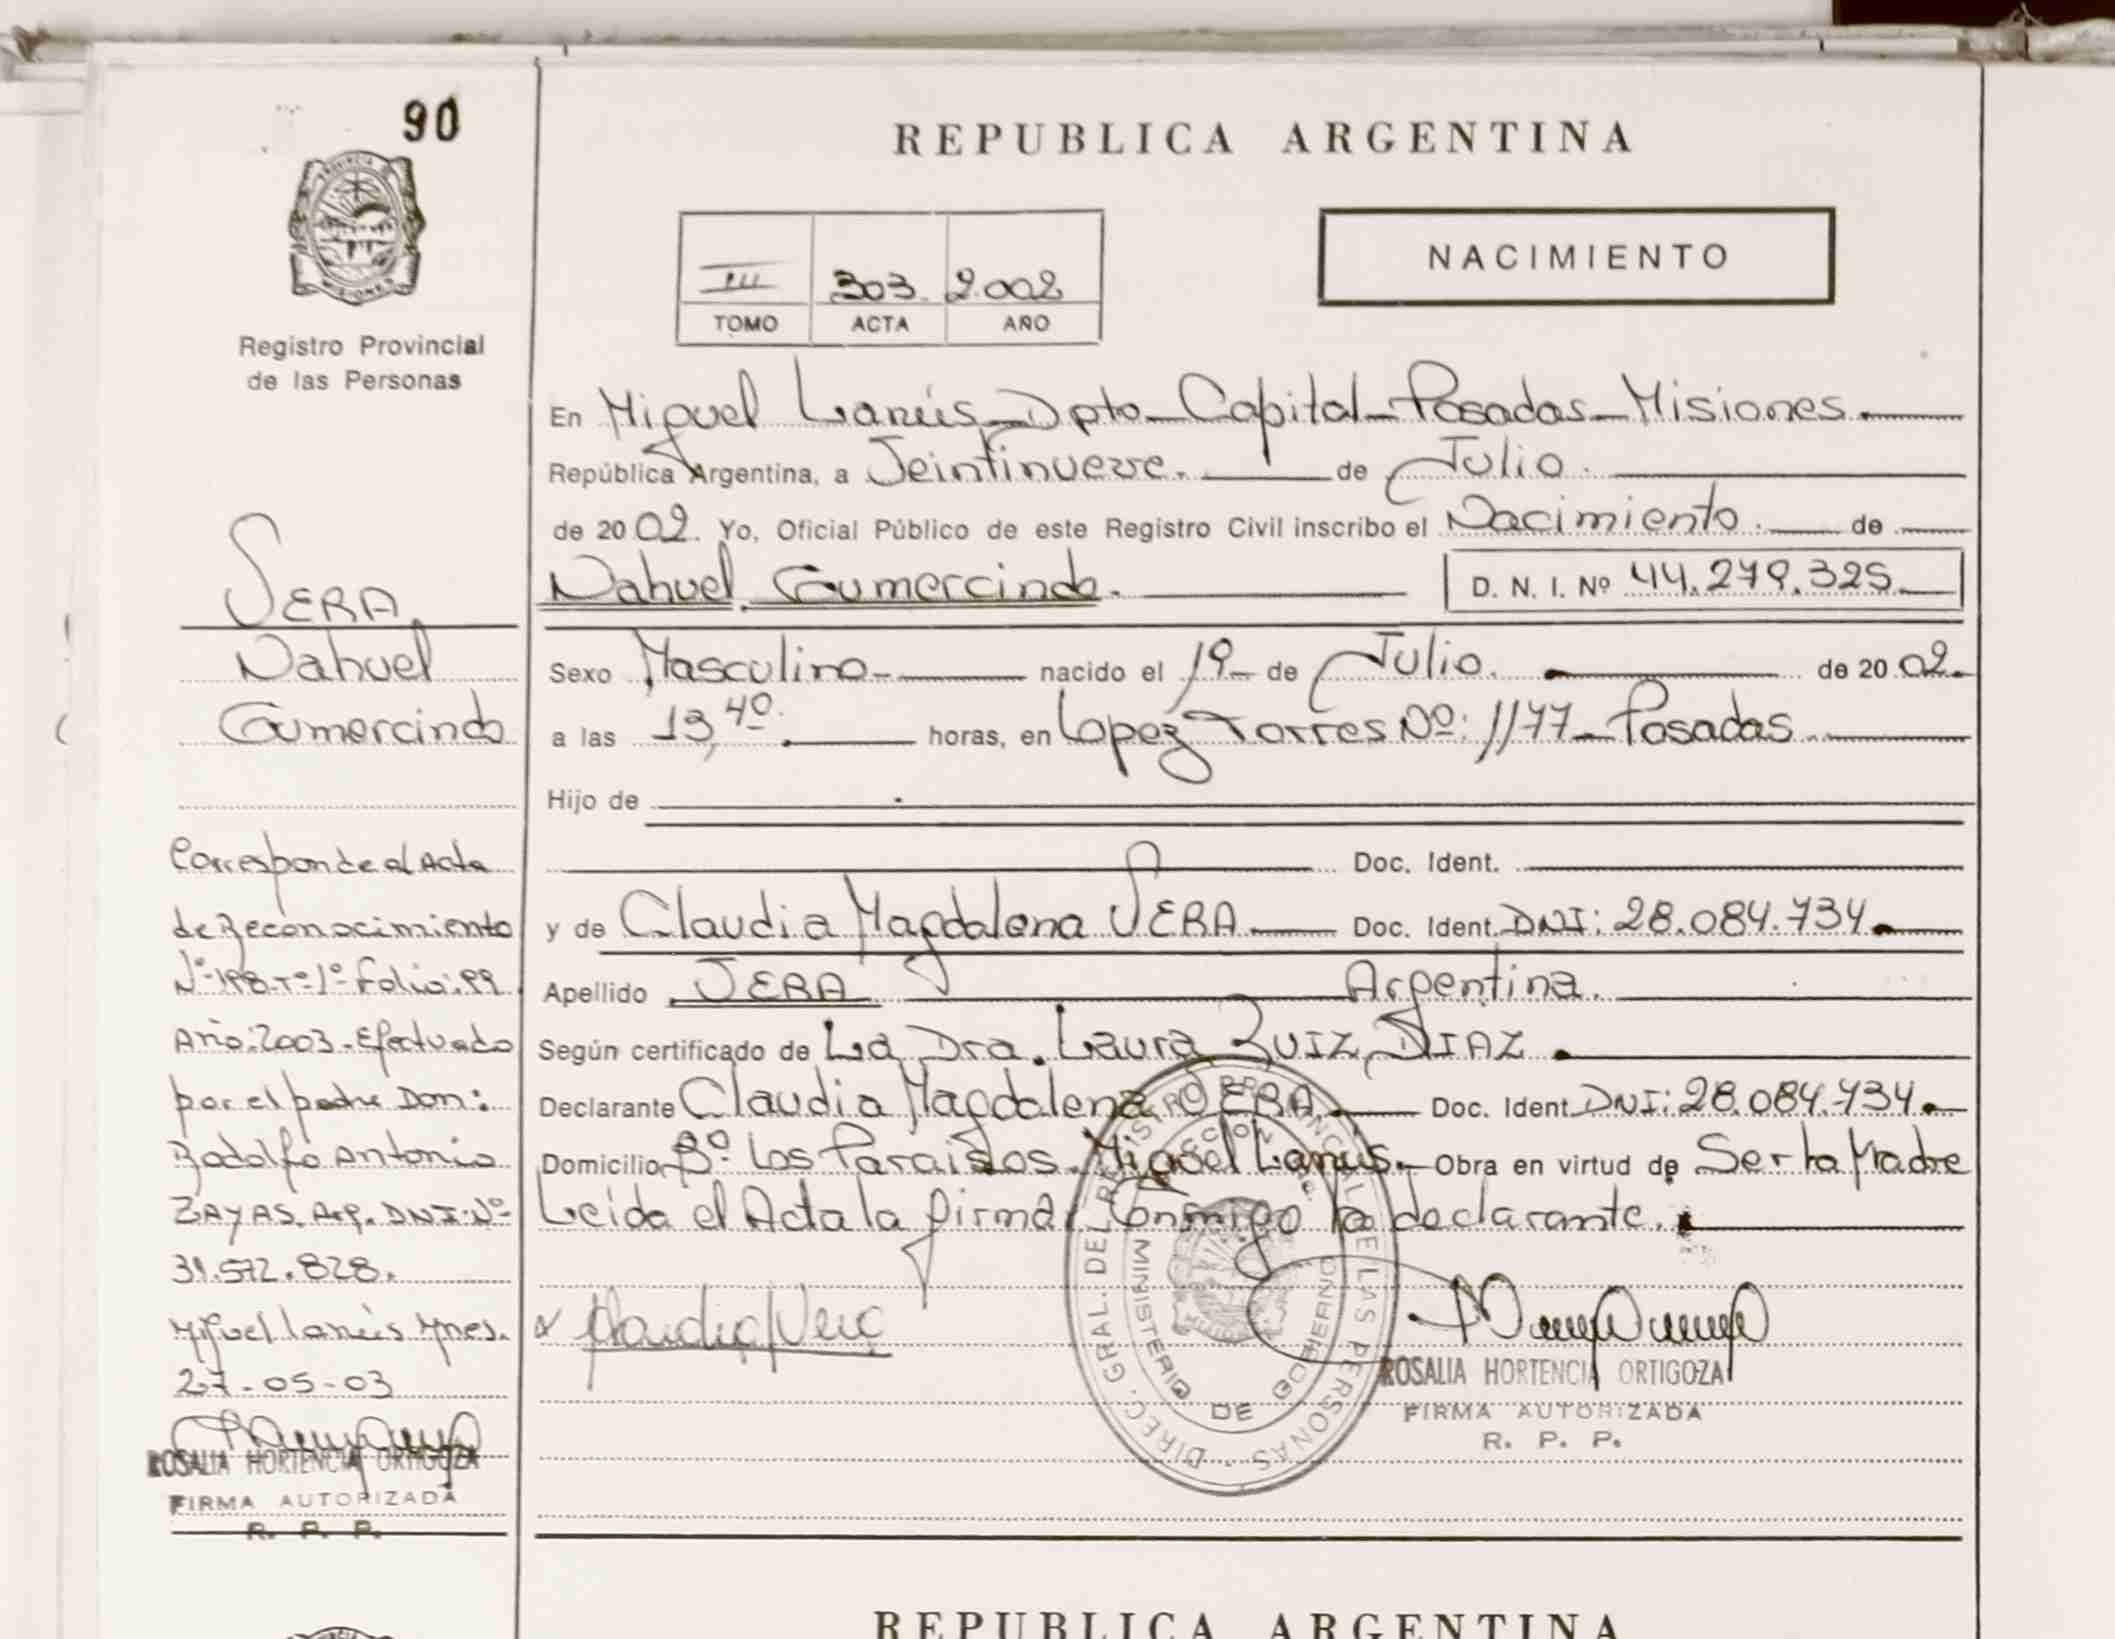 90
PROVINCIA DE
MISIONES
Registro Provincial
de las Personas
REPUBLICA ARGENTINA
NACIMIENTO
III 303. 2.002
TOMO ACTA AÑO
En Miguel Lanús_Dpto_Capital_Posadas_Misiones.
República Argentina, a Veintinueve. de Julio.
de 20 02. Yo, Oficial Público de este Registro Civil inscribo el Nacimiento. de
Nahuel Gumercindo. D. N. I. Nº 44.279.325.
Sexo Masculino nacido el 19 de Julio. de 20 02.
a las 13,40. horas, en Lopez Torres Nº: 1177_Posadas.
Hijo de
Doc. Ident.
y de Claudia Magdalena VERA Doc. Ident. DNI: 28.084.734.
Apellido VERA Argentina.
Según certificado de La Dra. Laura RUIZ DIAZ.
Declarante Claudia Magdalena VERA Doc. Ident. DNI: 28.084.734.
Domicilio Bº. Los Paraisos. Miguel Lanús. Obra en virtud de Ser la Madre
Leida el Acta la firma Conmigo la declarante.
Claudia Vera
DIREC. GRAL. DEL REGISTRO PROVINCIAL DE LAS PERSONAS
MINISTERIO DE GOBIERNO
ROSALIA HORTENCIA ORTIGOZA
FIRMA AUTORIZADA
R. P. P.
VERA
Nahuel
Gumercindo
Corresponde al Acta
de Reconocimiento
Nº 198-Tº-1º-Folio: 99
Año: 2003. Efectuado
por el padre Don:
Rodolfo Antonio
ZAYAS. Arg. DNI: Nº
31.572.828.
Miguel Lanús Mnes.
27-05-03
ROSALIA HORTENCIA ORTIGOZA
FIRMA AUTORIZADA
R. P. P.
REPUBLICA ARGENTINA